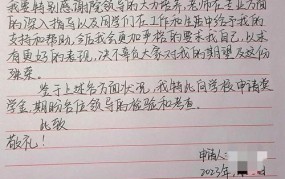 我要特别感谢院领导的大力培养,老师在专业方面
的深入指导以及同学们在工作和生活中给予我的
支持和帮助。今后我会更加严格的要求我自己,以求
有更好的表现,决不辜负大家对我的期望及这份
殊荣。
鉴于上述各方面状况,我特此向学校申请奖
学金,期盼各位领导的检验和考查。
此致
敬礼!
申请人:
2023年